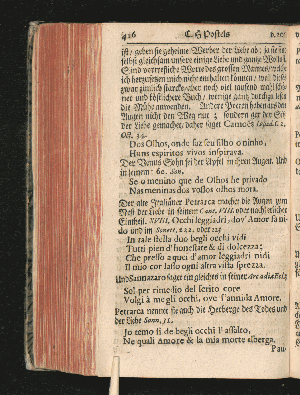 426 C. H. Postels
ist / geben sie geheime Werber der Liebe ab; ja sie
selbst gleichsam unsere einige Liebe und gantze Wol
Sind vortreffliche Worte des grossen Mannes /
herzusetzen mich nicht enthalten können / weil diese
zwar zimlich starcke aber noch viel tausend mahl
ner und köstlichere Buch / wenige gantz durchzulesen
die Mühe anwenden. Andere Poeten haben aus den
Augen nicht den Weg nur / sondern gar der
der Liebe gemachet, daher saget Camoës
Oct. 34.
Dos Olhos, onde faz seu filho o ninho,
Huns espiritos vivos inspirava.
Der Venus Sohn sei der Apfel in ihren Augen. Und
in seinem 60. Son.
Se o menino que de Olhos he privado
Nas meninas dos vossos olhos mora.
Der alte Italiäner Petrarca machet die Augen zum
Nest der Liebe in seinem Canz. VIII. oder nach etlicher
Eintheil. XVIII. Occhi leggiadri, dov' Amor fa ni-
do und im Sonett. 222. oder 225
In tale stella duo begli occhi vidi
Tutti pien d'honestate & di dolcezza;
Che presso a quei d'amor leggiadri nidi
Il mio cor lasso ogni altra vista sprezza.
Und Sannazaro saget ein gleiches in seiner Arcadia
Sol per rimedio del ferito core
Volgi à me gli occhi, ove s'annida Amore.
Petrarca nennet sie auch die Herberge des Todes und
der Liebe Sonn. 31.
Io temo sì de begli occhi l' assalto,
Ne quali Amore & la mia morte alberga.
Pau-